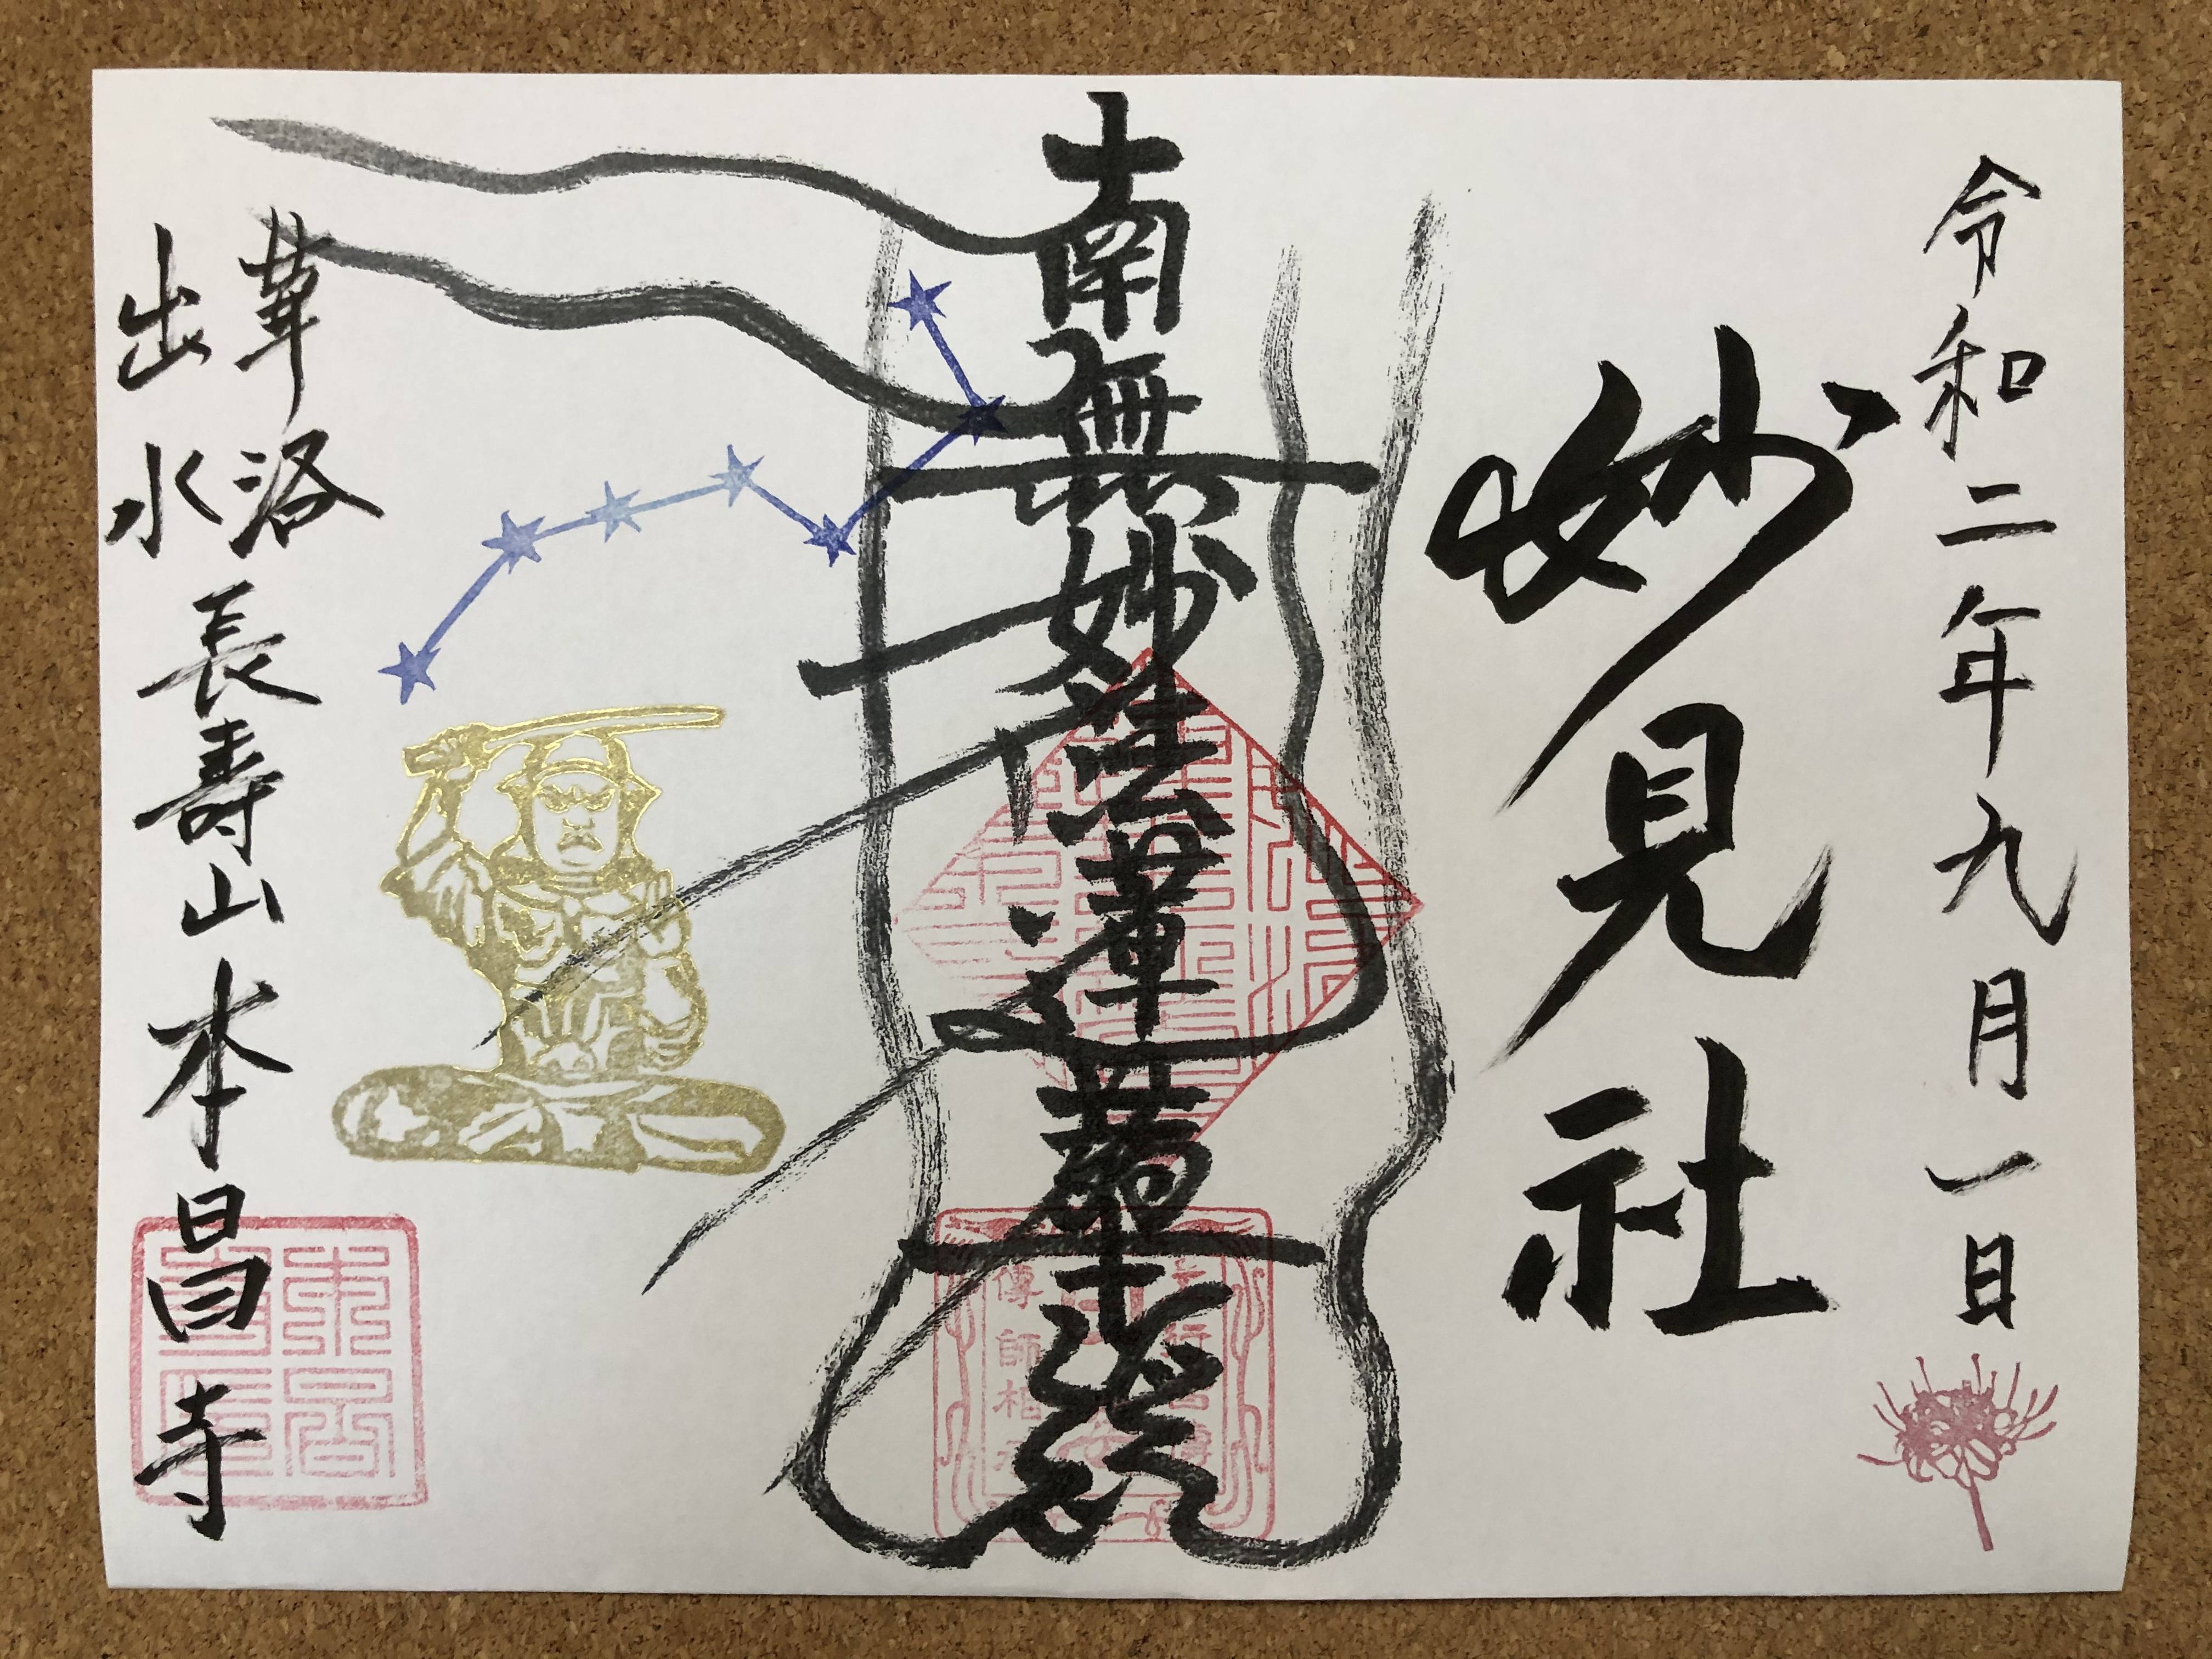 令和二年九月一日
妙見社
南無妙法蓮華経
華洛
出水
長壽山本昌寺
傳師相承